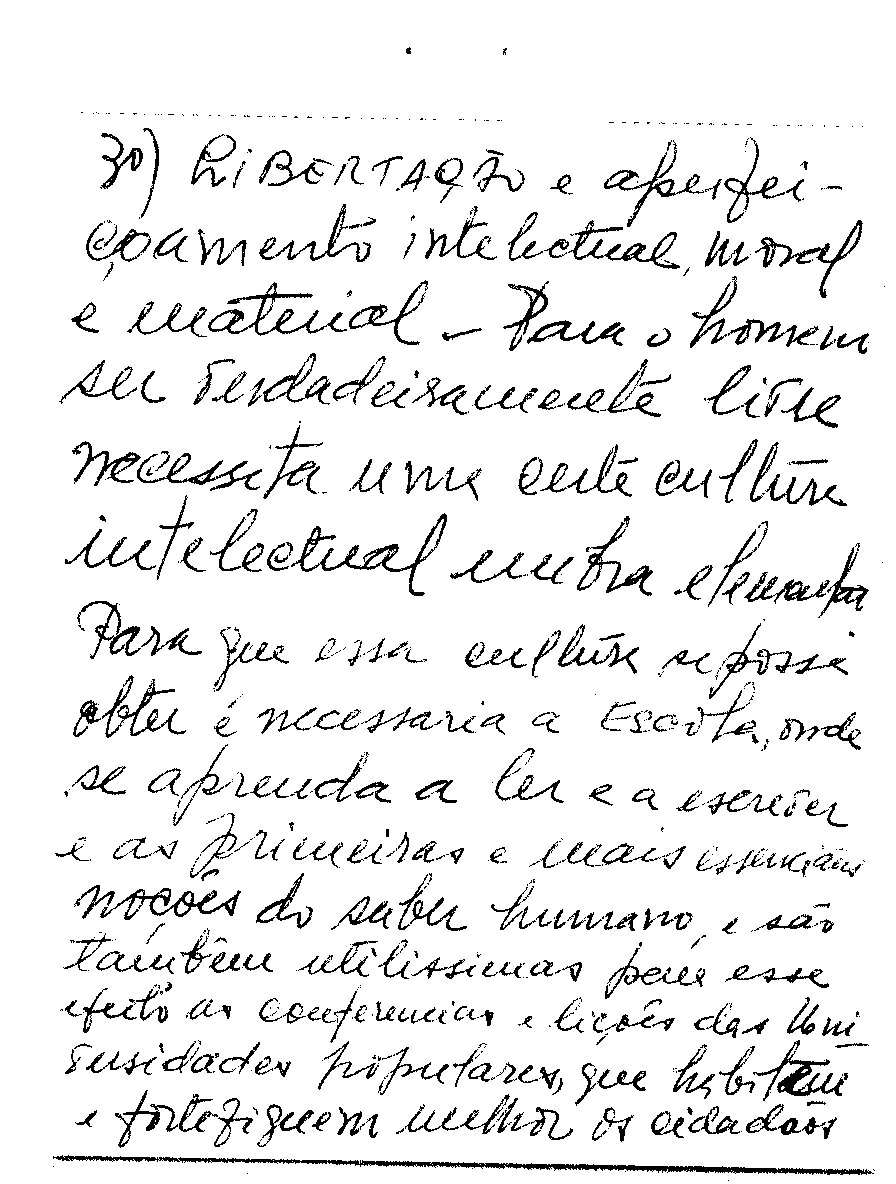 30) LIBERTAÇÃO e aperfei-
çoamento intelectual, moral
e material – Para o homem
ser verdadeiramente livre
necessita uma certa cultura
intelectual embora elementar
Para que essa cultura se possa
obter é necessaria a Escola, onde
se aprenda a ler e a escrever
e as primeiras e mais essenciaes
noções do saber humano, e são
também utilissimas para esse
efeito as conferencias e lições das Uni
versidades populares, que habilitem
e fortefiquem melhor os cidadãos